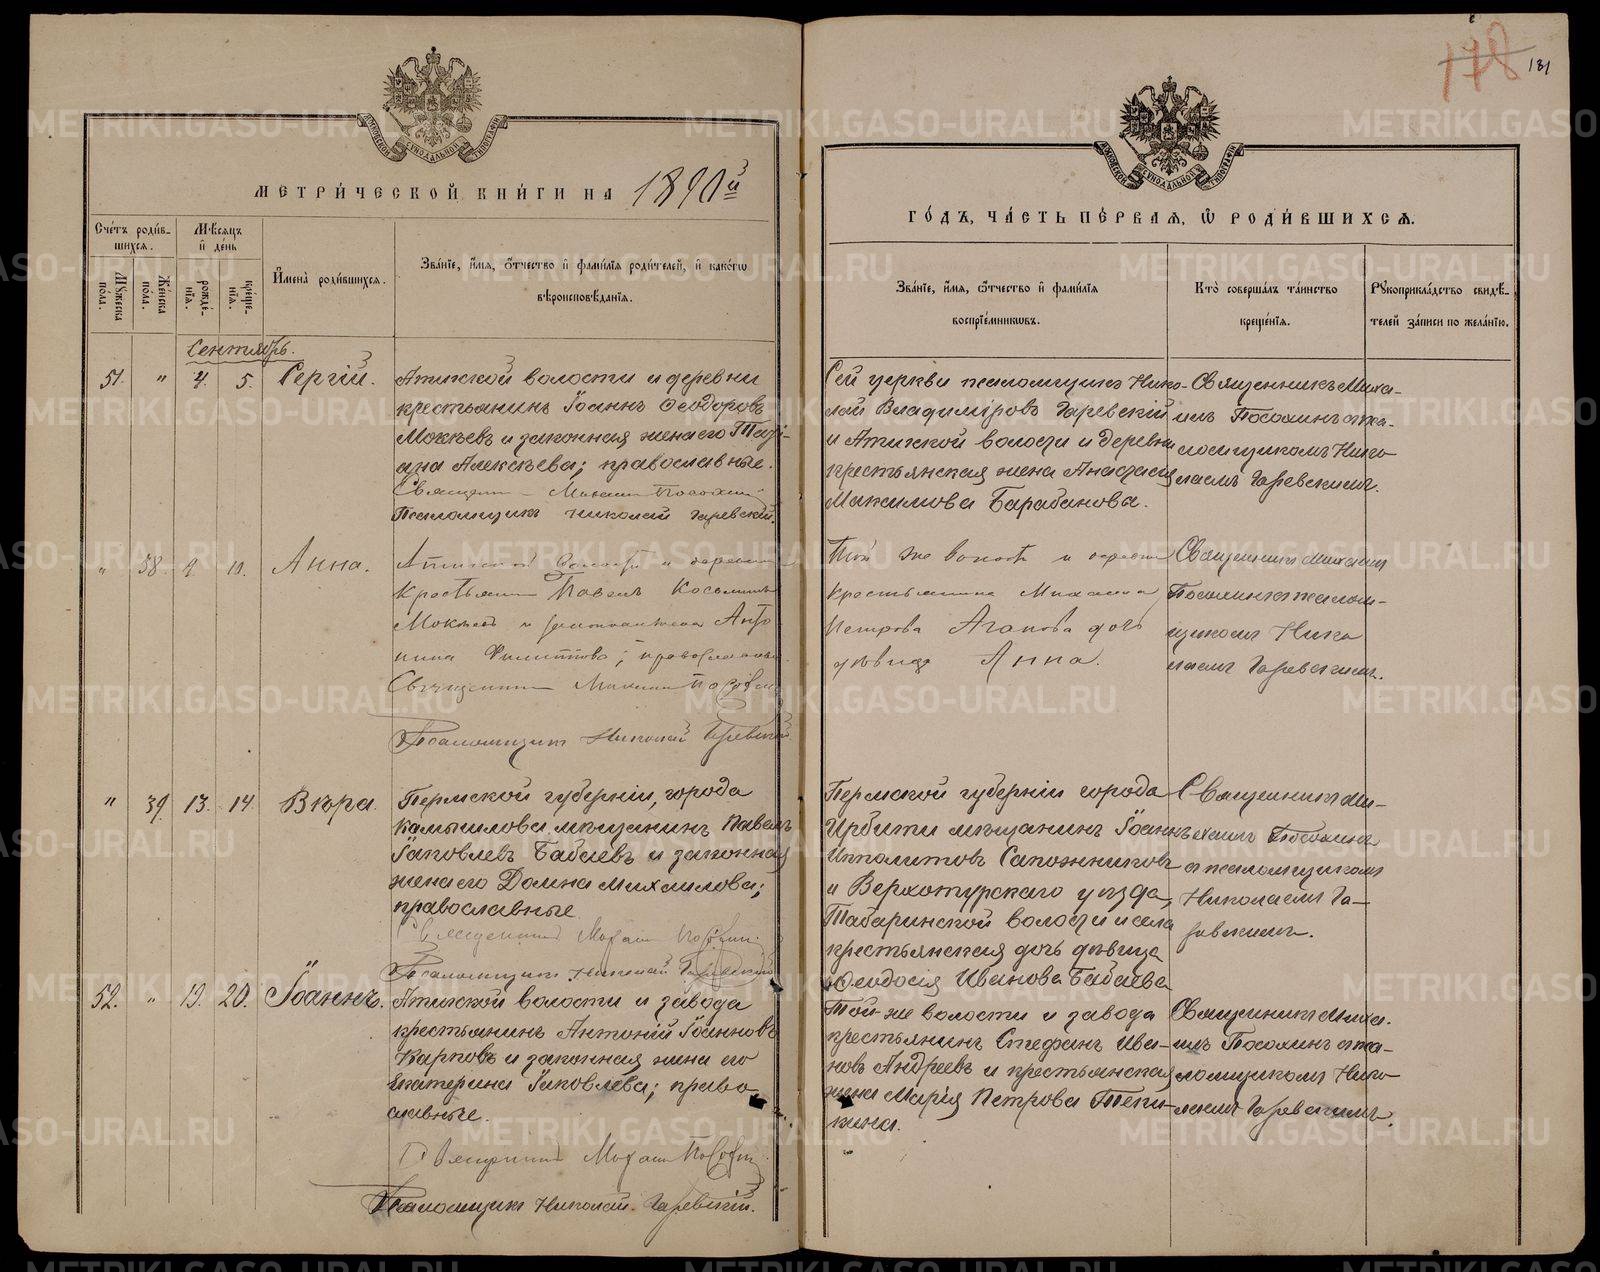 178 131
МОСКОВСКОЙ СѴНОДАЛЬНОЙ ТИПОГРАФІИ
МОСКОВСКОЙ СѴНОДАЛЬНОЙ ТИПОГРАФІИ
МЕТРИ́ЧЕСКОЙ КНИ́ГИ НА 1890й
ГО́ДЪ, ЧА́СТЬ ПЕ́РВАЯ, Ѡ РОДИ́ВШИХСЯ.
Сче́тъ роди́в-
шихся.
Мꙋ́жеска по́ла.
Же́нска по́ла.
Мѣ́сяцъ
и де́нь
рожде́-
нія.
креще́-
нія.
И҆мена̀ роди́вшихся.
Зва́ніе, и҆́мя, ѻ҆́тчество и҆ фами́лія роди́телей, и҆ како́гѡ
вѣроисповѣ́данія.
Зва́ніе, и҆́мя, ѻ҆́тчество и҆ фами́лія
воспріе́мникѡвъ.
Кто̀ соверша́лъ та́инство
креще́нія.
Рꙋкоприкла́дство свидѣ́-
телей за́писи по жела́нію.
Сентябрь.
51. " 4. 5. Сергій.
Атижской волости и деревни
крестьянинъ Іоаннъ Ѳеодоровъ
Мокѣевъ и законная жена его Тати-
ана Алексѣева; православные.
Священ Михаил Посохин
Псаломщикъ Николай Гаревский.
Сей церкви псаломщикъ Нико-
лай Владиміровъ Гаревскій
и Атижской волости и деревни
крестьянская жена Анастасія
Максимова Барабанова.
Священникъ Миха-
илъ Посохинъ с пса-
ломщикомъ Нико-
лаемъ Гаревскимъ.
" 38. 9. 10. Анна.
Атижской волости и деревни
Крестьянин Павелъ Косьминъ
Мокѣев и законная жена Анто
нина Филиппова; православные.
Священник Михаил Посохин
Псаломщик Николай Гаревский.
Той же волости и деревни
Крестьянина Михаила
Петрова Агапова дочь
дѣвица Анна.
Священник Михаил
Посохин с псалом-
щиком Нико
лаем Гаревским.
" 39. 13. 14. Вѣра.
Пермской губерніи, города
Камышлова мѣщанинъ Павелъ
Іаковлевъ Бабаевъ и законная
жена его Домна Михаилова;
православные.
Священник Михаил Посохин
Псаломщик Николай Гаревский
Пермской губерніи города
Ирбити мѣщанинъ Іоаннъ
Ипполитовъ Сапожниковъ
и Верхотурскаго уѣзда,
Табаринской волости и села
крестьянская дочь дѣвица
Ѳеодосія Иванова Бабаева
Священник Ми-
хаилъ Посохинъ
с псаломщиком
Николаем Га-
ревским.
52. " 19. 20. Іоаннъ.
Атижской волости и завода
крестьянинъ Антоній Іоанновъ
Карповъ и законная жена его
Екатерина Іаковлева; право-
славные.
Священник Михаил Посохин
Псаломщик Николай Гаревскій.
Той-же волости и завода
крестьянинъ Стефанъ Ива-
новъ Андреевъ и крестьянская
жена Марія Петрова
кина.
Священник Миха-
илъ Посохинъ с пса-
ломщиком Нико-
лаем Гаревскимъ.
METRIKI.GASO-URAL.RU